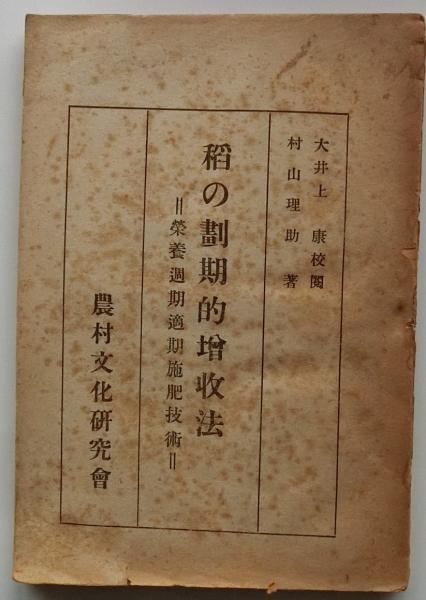 大井上 康校閲
村山理助 著
稻の劃期的增收法
＝榮養週期適期施肥技術＝
農村文化硏究會